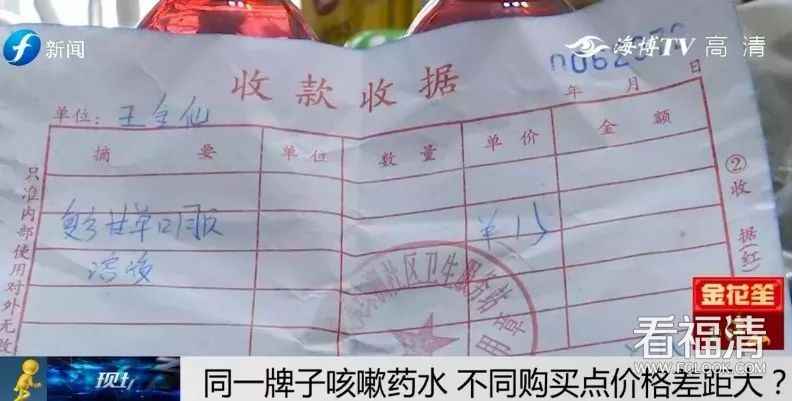 新闻
海博TV 高清
收款收据
年 月 日
单位:王全仙
摘要 单位 数量 单价 金额
复方甘草口服
溶液
②收据(红)
只准内部使用对外无效
社区卫生服务站
用章
金花笙
看福清
WWW.FQLOOK.COM
同一牌子咳嗽药水 不同购买点价格差距大?